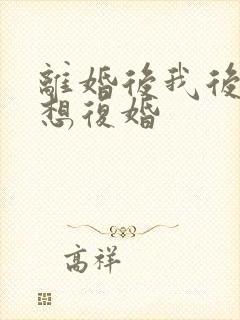 離婚後我後
想復婚
高祥